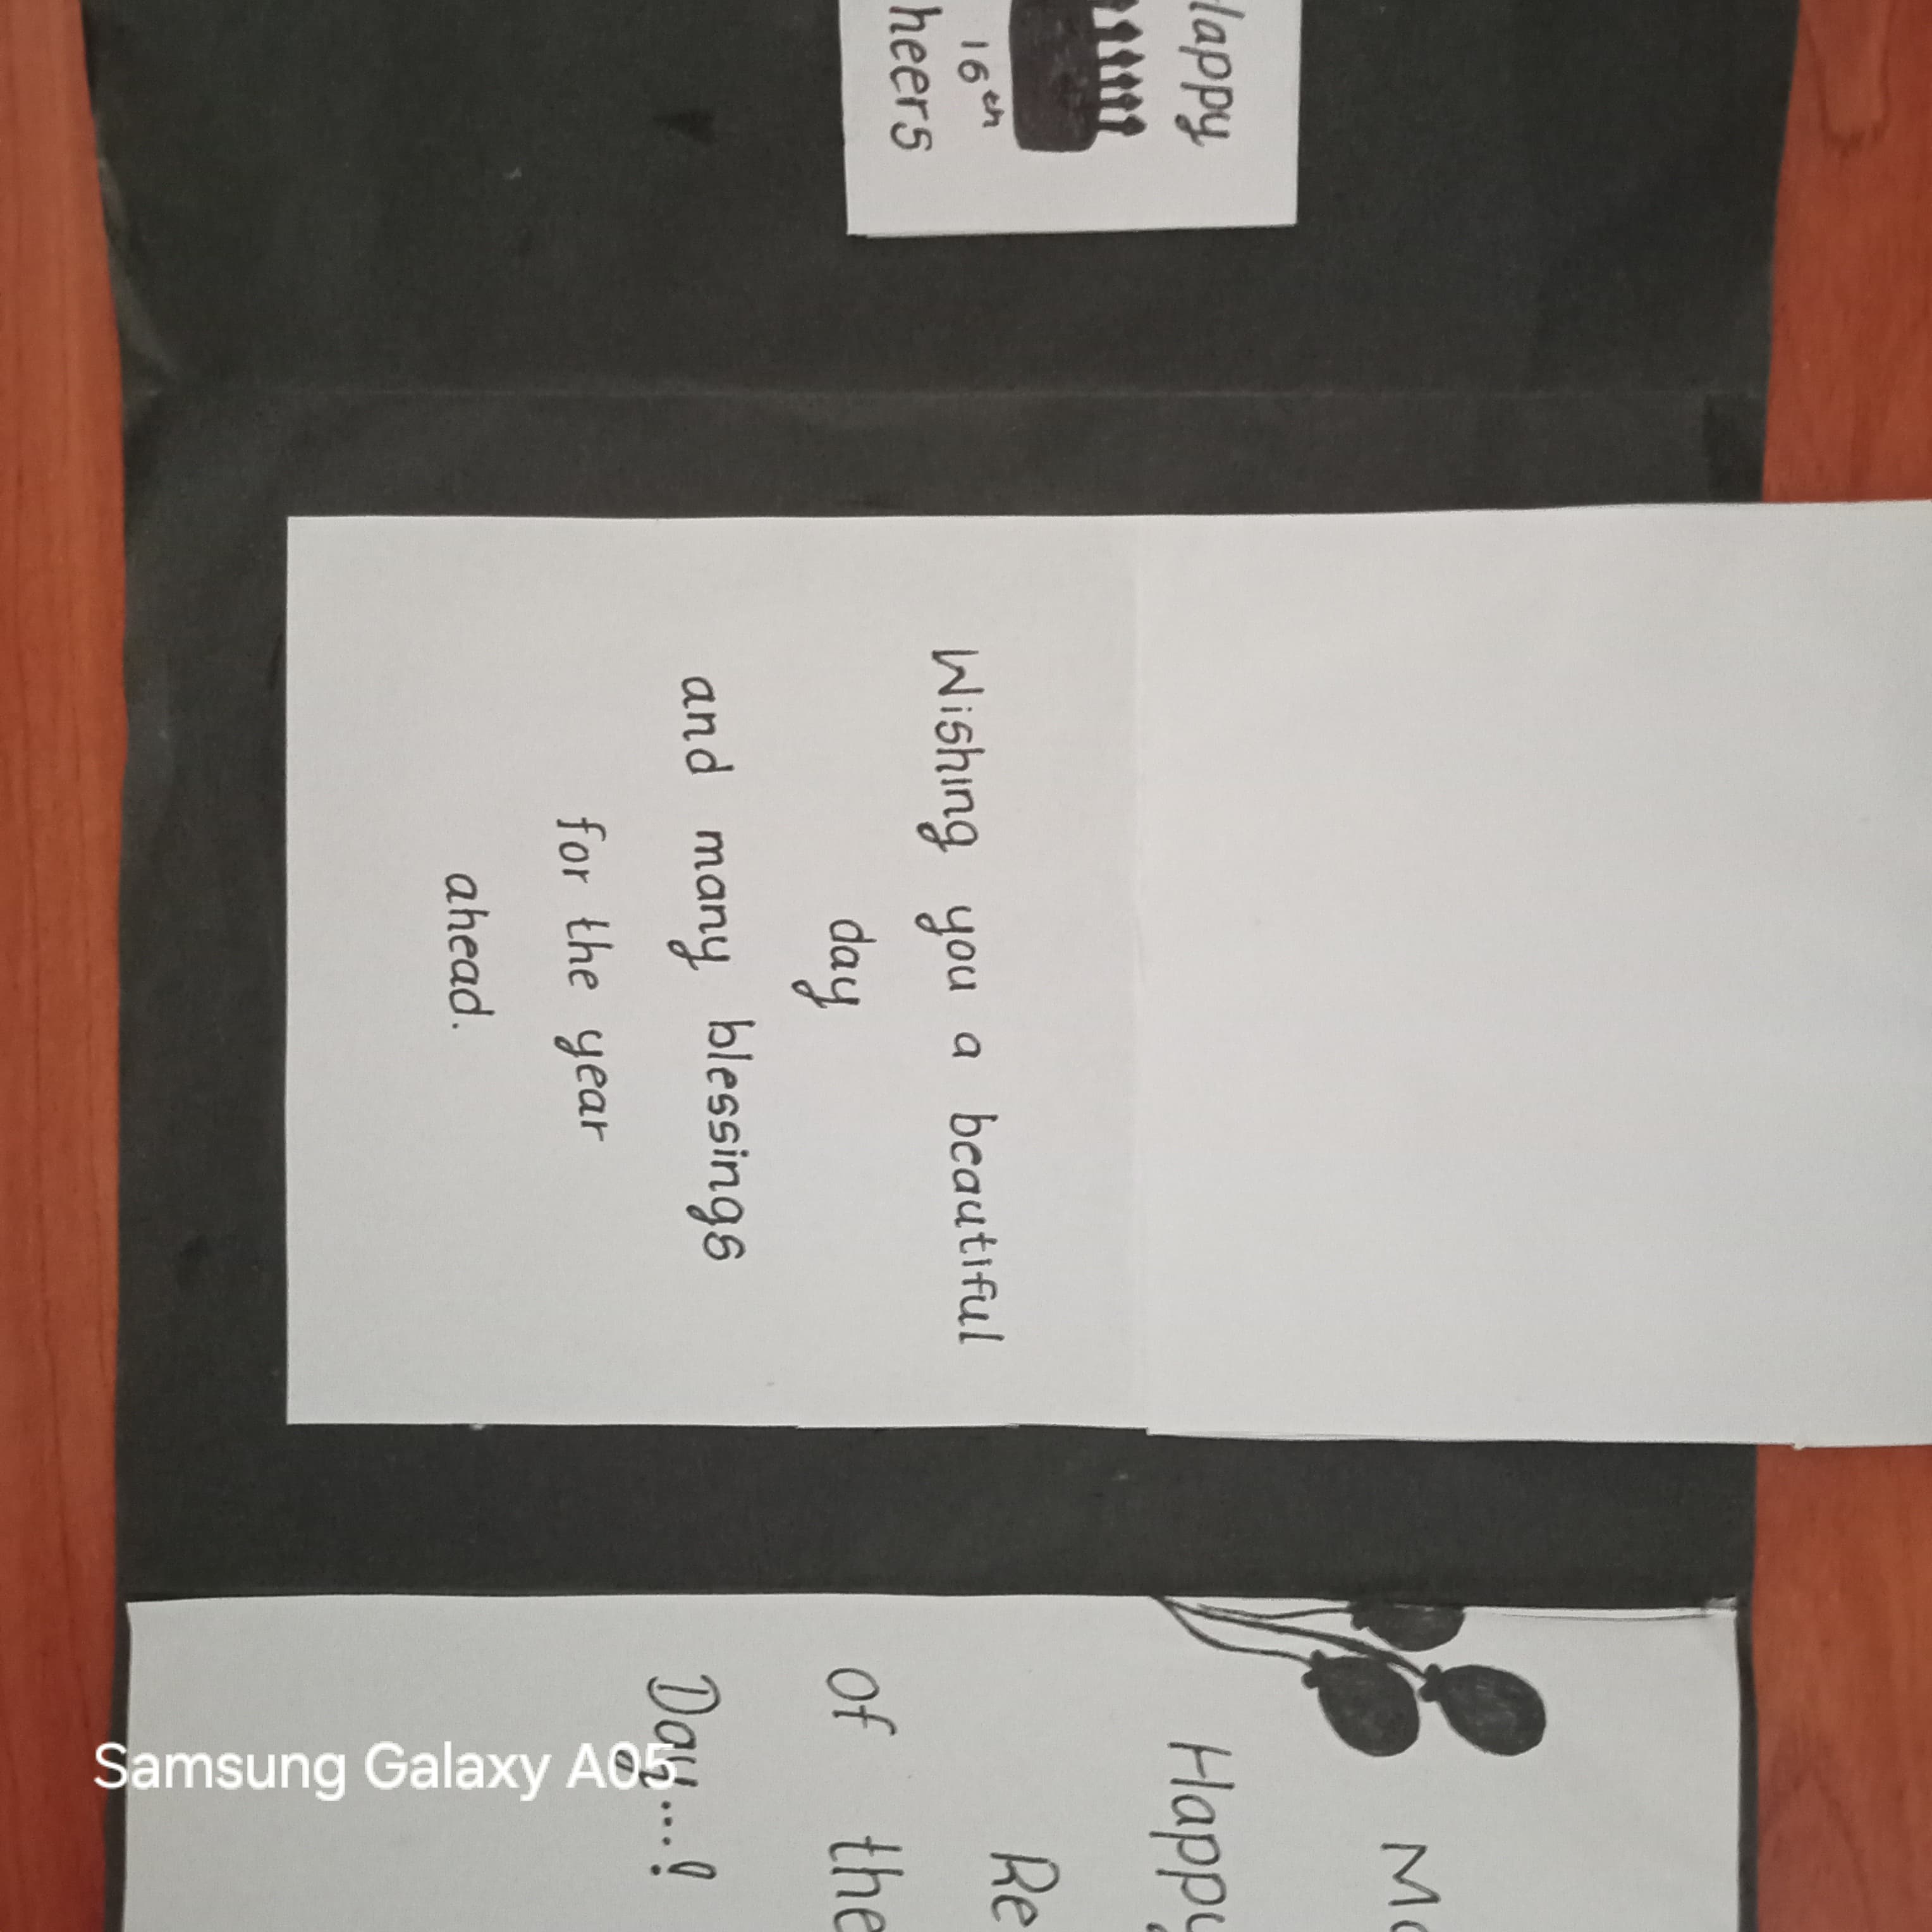 Happy
16th
heers
Wishing you a beautiful
day
and many blessings
for the year
ahead.
Happy
Re
Of the
Day...!
Samsung Galaxy A05